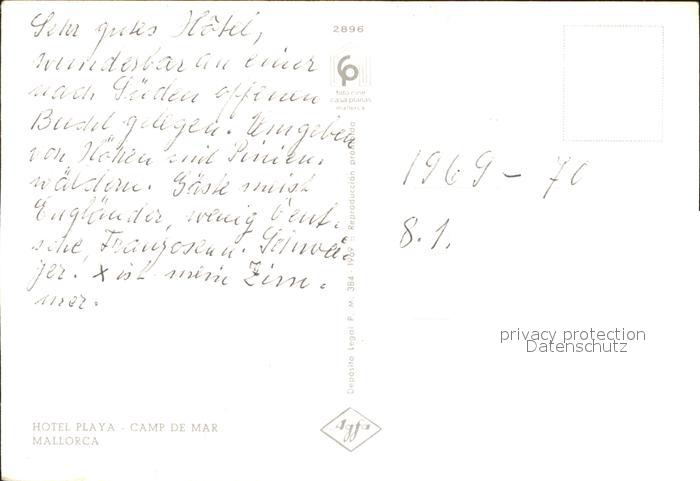 Sehr gutes Hotel,
wunderbar an einer
nach Süden offenen
Bucht gelegen. Umgeben
von Höhen mit Pinien-
wäldern. Gäste meist
Engländer, wenig Deut-
sche, Franzosen u. Schwei-
zer. x ist mein Zim-
mer.
HOTEL PLAYA - CAMP DE MAR
MALLORCA
2896
foto cine
casa planas
mallorca
Depósito Legal P. M. 384 - 1969 :: Reproducción prohibida
Agfa
1969 - 70
8.1.
privacy protection
Datenschutz